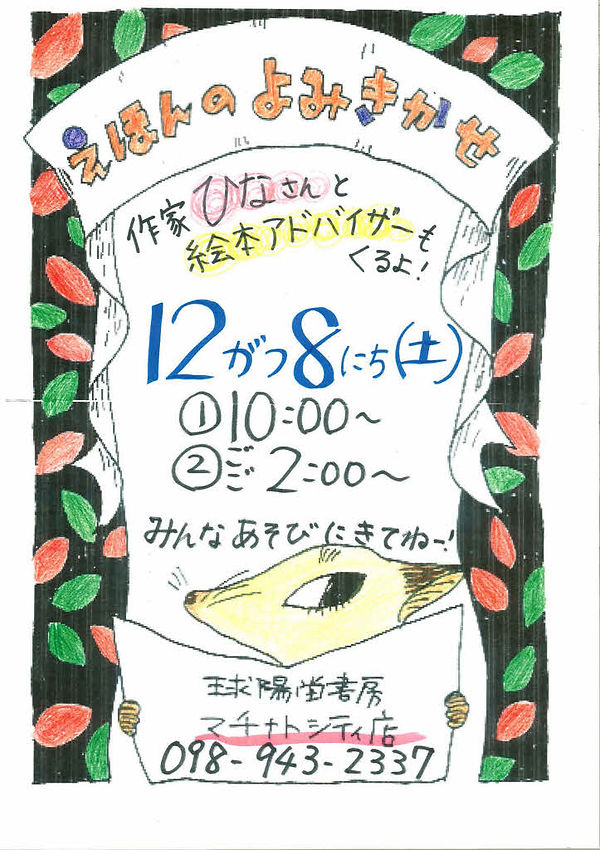 えほんのよみきかせ
作家ひなさんと
絵本アドバイザーも
くるよ!
12がつ8にち(土)
①10:00~
②ごご2:00~
みんなあそびにきてねー!
球陽堂書房
マチナトシティ店
098-943-2337